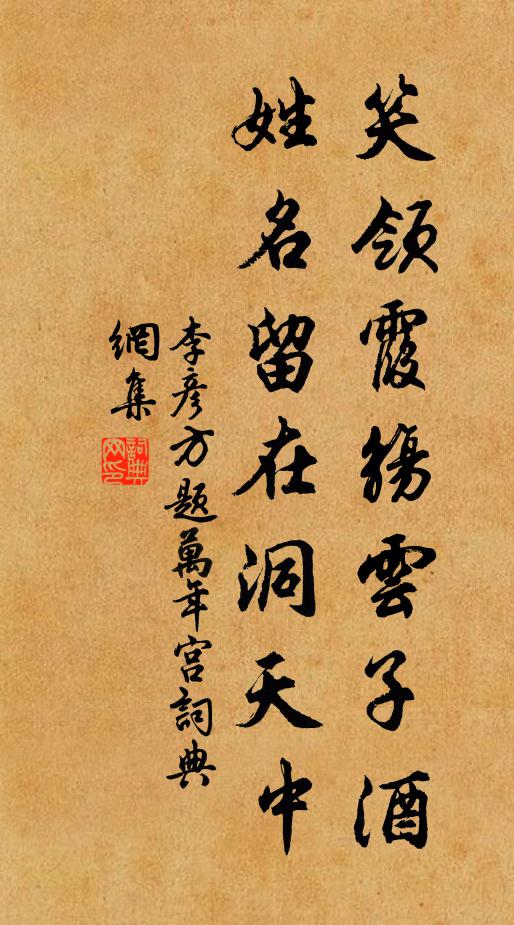 笑領霞觴雲子酒
姓名留在洞天中
李彥方題萬年宮詞典
網集
詞典网印